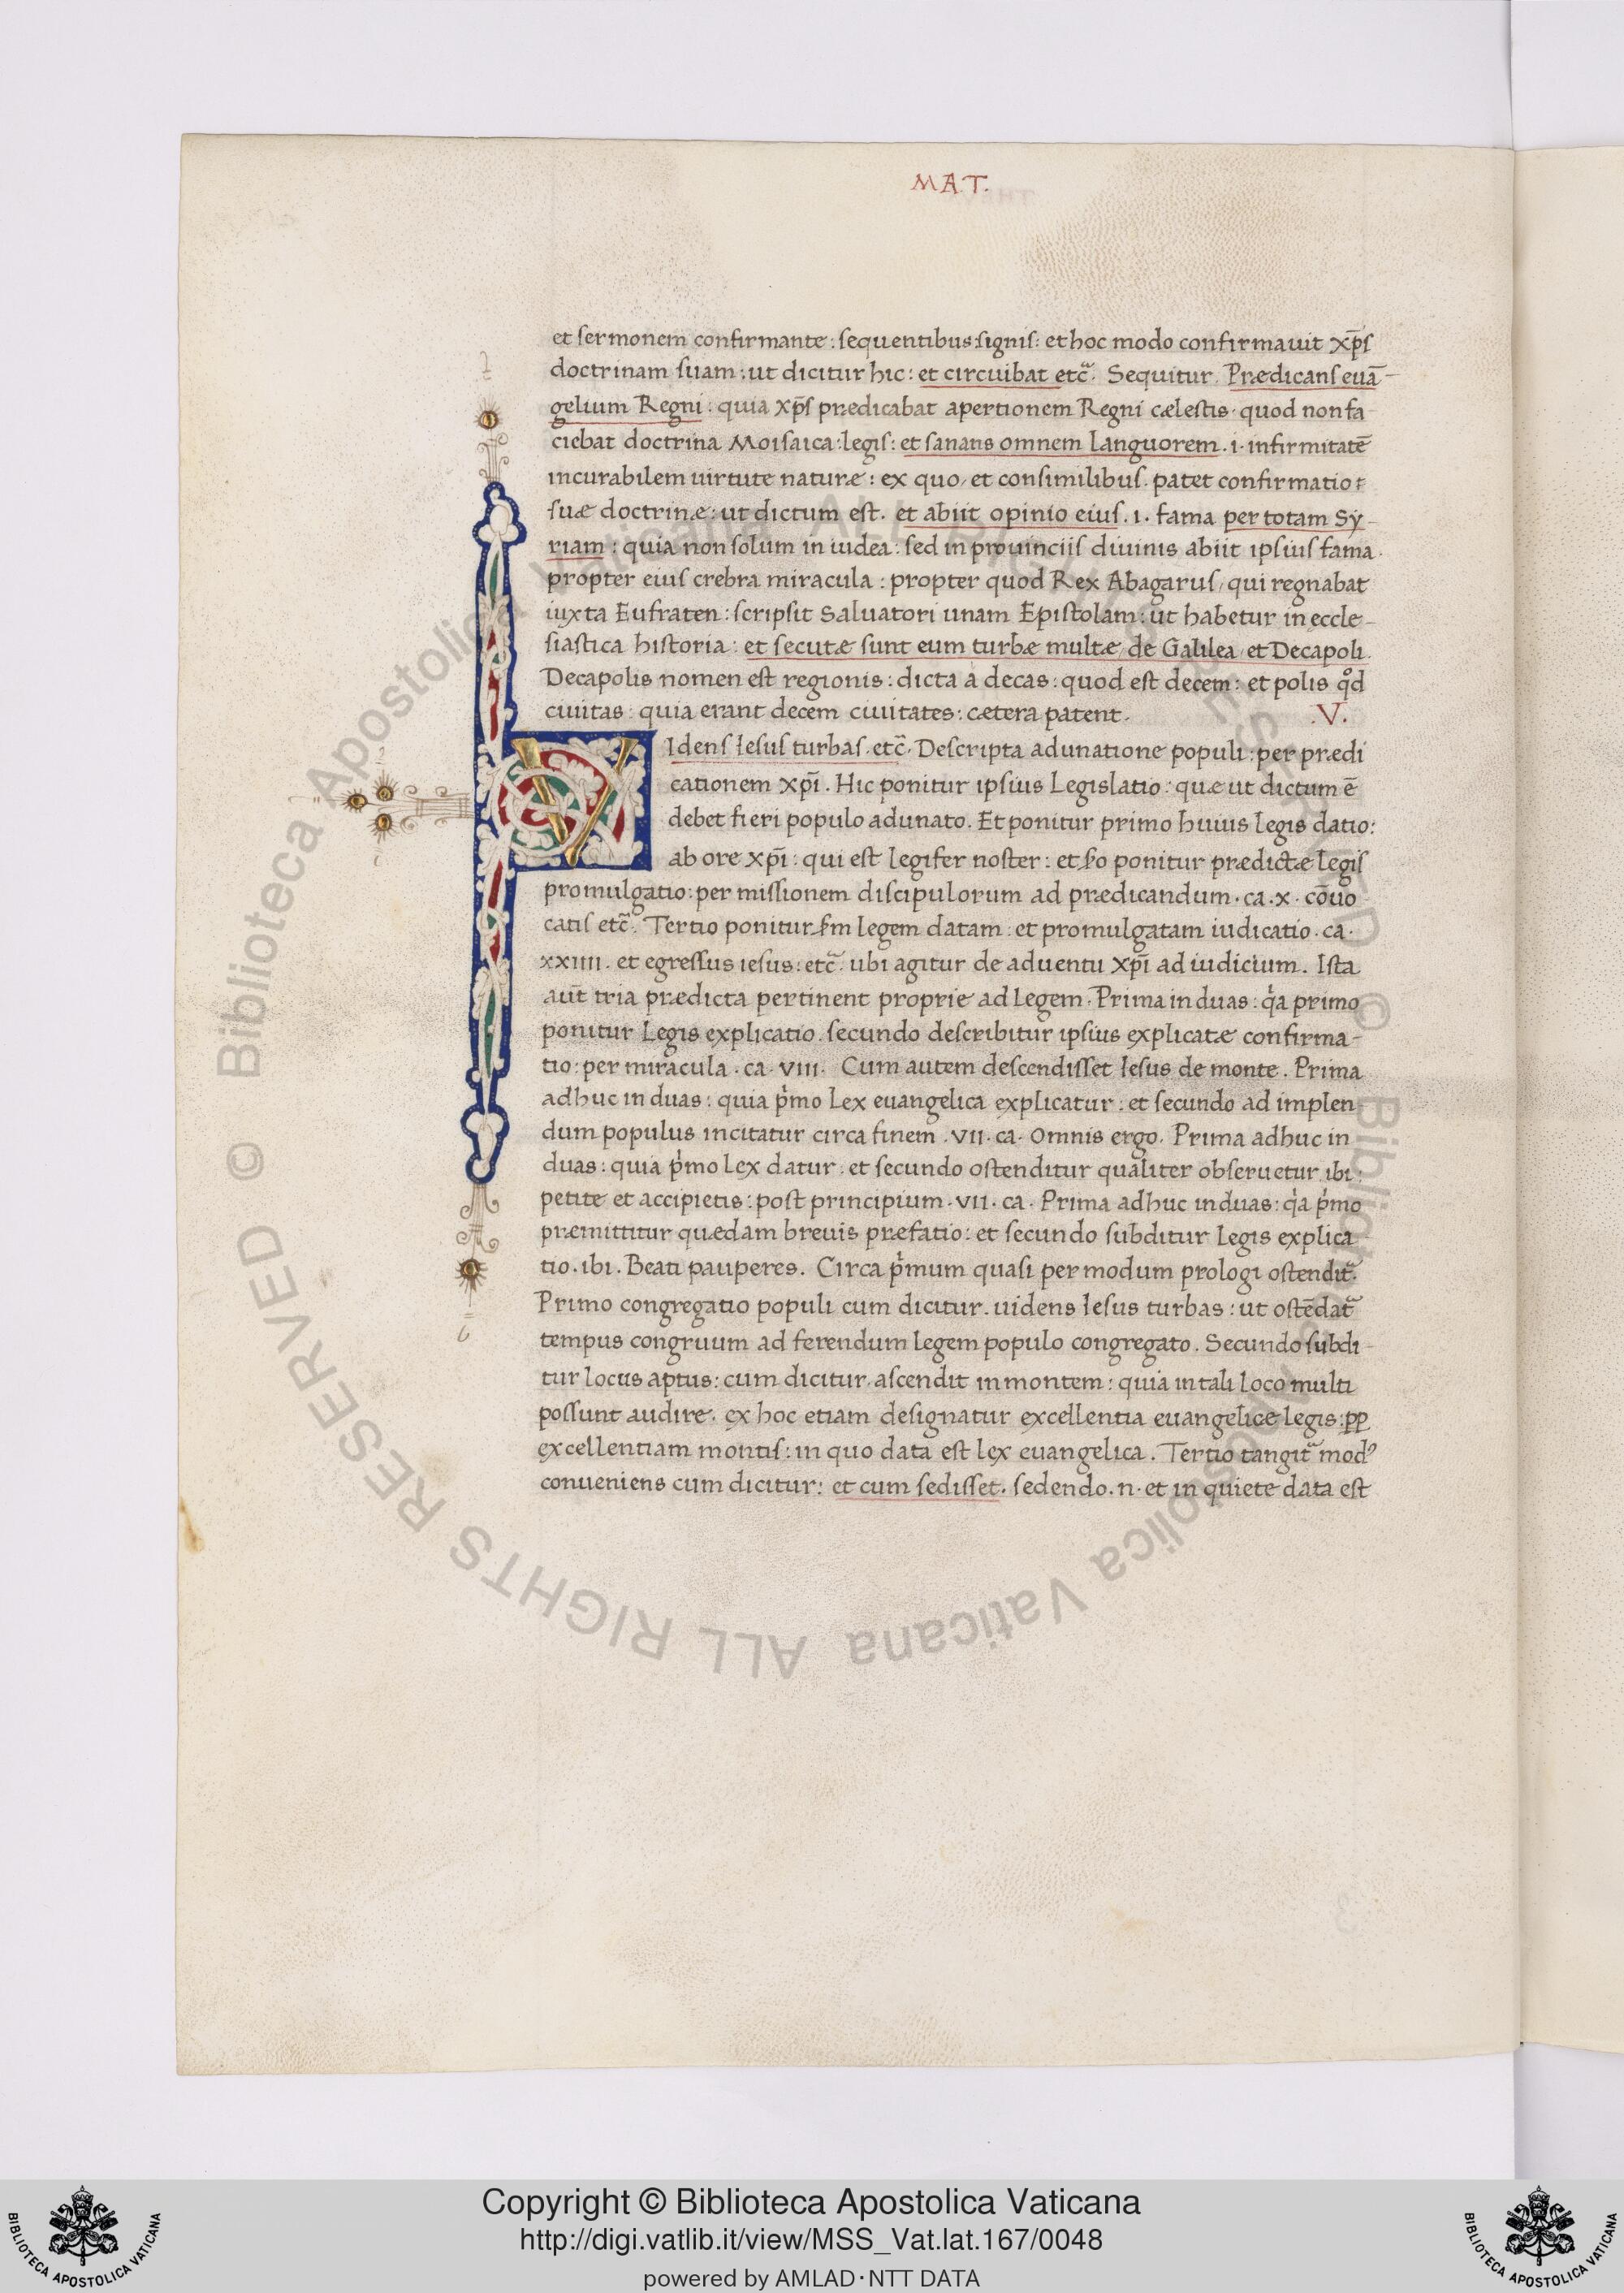 MAT.
et sermonem confirmante: sequentibus signis: et hoc modo confirmavit xp̅s
doctrinam suam: ut dicitur hic: et circuibat etc̃. Sequitur. Prædicans euā-
gelium Regni: quia xp̅s prædicabat apertionem Regni cælestis. quod non fa
ciebat doctrina Moisaica: legis: et sanans omnem languorem .i. infirmitatē
incurabilem uirtute naturæ: ex quo, et consimilibus. patet confirmatio:
suæ doctrinæ: ut dictum est. et abiit opinio eius .i. fama per totam Sy-
riam: quia non solum in iudea: sed in prouinciis diuinis abiit ipsius fama.
propter eius crebra miracula: propter quod Rex Abagarus, qui regnabat
iuxta Eufraten: scripsit Saluatori unam Epistolam: ut habetur in eccle-
siastica historia: et secutæ sunt eum turbæ multæ, de Galilea, et Decapoli.
Decapolis nomen est regionis: dicta à decas: quod est decem: et polis qͦd
ciuitas: quia erant decem ciuitates: cætera patent. .V.
VIdens Iesus turbas. etc̃. Descripta adunatione populi: per prædi
cationem xp̅i. Hic ponitur ipsius Legislatio: quæ ut dictum ē
debet fieri populo adunato. Et ponitur primo huius legis datio:
ab ore xp̅i: qui est legifer noster: et ßo ponitur prædictæ legis
promulgatio: per missionem discipulorum ad prædicandum. ca. x. cōuo
catis etc̃. Tertio ponitur ßm legem datam: et promulgatam iudicatio. ca.
xxiiii. et egressus iesus: etc̃. ubi agitur de aduentu xp̅i ad iudicium. Ista
aut̄ tria prædicta pertinent proprie ad legem. Prima in duas: qͥa primo
ponitur Legis explicatio. secundo describitur ipsius explicatæ confirma-
tio: per miracula. ca. VIII. Cum autem descendisset Iesus de monte. Prima
adhuc in duas: quia pͥmo Lex euangelica explicatur: et secundo ad implen
dum populus incitatur circa finem .VII. ca. Omnis ergo. Prima adhuc in
duas: quia pͥmo lex datur: et secundo ostenditur qualiter obseruetur. ibi:
petite et accipietis: post principium .VII. ca. Prima adhuc in duas: qͥa pͥmo
præmittitur quædam breuis præfatio: et secundo subditur Legis explica
tio. ibi. Beati pauperes. Circa pͥmum quasi per modum prologi ostendit̃.
Primo congregatio populi cum dicitur. uidens Iesus turbas: ut ostēdat̃
tempus congruum ad ferendum legem populo congregato. Secundo subdi-
tur locus aptus: cum dicitur. ascendit in montem: quia in tali loco multi
possunt audire. ex hoc etiam designatur excellentia euangelice legis: pp
excellentiam montis: in quo data est lex euangelica. Tertio tangit̃ modꝰ
conueniens cum dicitur: et cum sedisset. sedendo .n. et in quiete data est
© Biblioteca Apostolica Vaticana ALL RIGHTS RESERVED © Biblioteca Apostolica Vaticana ALL RIGHTS RESERVED
Copyright © Biblioteca Apostolica Vaticana
http://digi.vatlib.it/view/MSS_Vat.lat.167/0048
powered by AMLAD·NTT DATA
BIBLIOTECA APOSTOLICA VATICANA
BIBLIOTECA APOSTOLICA VATICANA